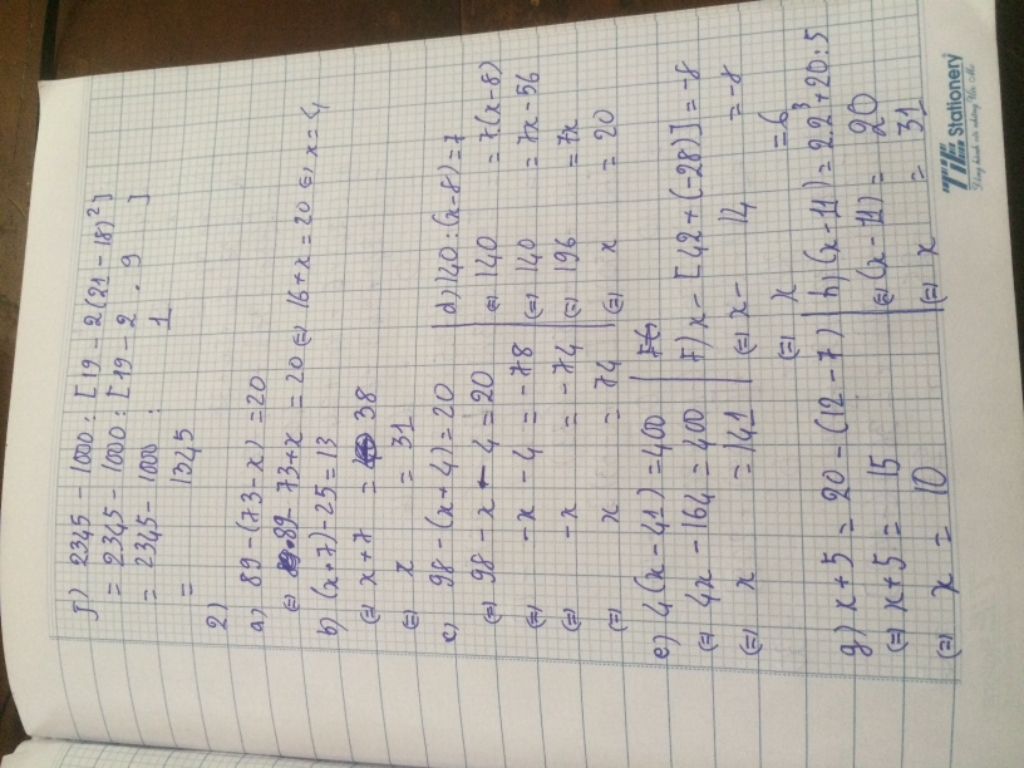 j) 2345 - 1000 : [19 - 2(21 - 18)²]
= 2345 - 1000 : [19 - 2 . 9 ]
= 2345 - 1000 : 1
= 1345
2)
a) 89 - (73 - x) = 20
(=) 89 - 73 + x = 20 (=) 16 + x = 20 (=) x = 4
b) (x + 7) - 25 = 13
(=) x + 7 = 38
(=) x = 31
c) 98 - (x + 4) = 20
(=) 98 - x - 4 = 20
(=) - x - 4 = - 78
(=) - x = - 74
(=) x = 74
d) 140 : (x - 8) = 7
(=) 140 = 7(x - 8)
(=) 140 = 7x - 56
(=) 196 = 7x
(=) x = 20
e) 4(x - 41) = 400
(=) 4x - 164 = 400
(=) x = 141
F) x - [42 + (-28)] = -8
(=) x - 14 = -8
(=) x = 6
g) x + 5 = 20 - (12 - 7)
(=) x + 5 = 15
(=) x = 10
h) (x - 11) = 2.2³ + 20 : 5
(=) (x - 11) = 20
(=) x = 31
TiTi Stationery